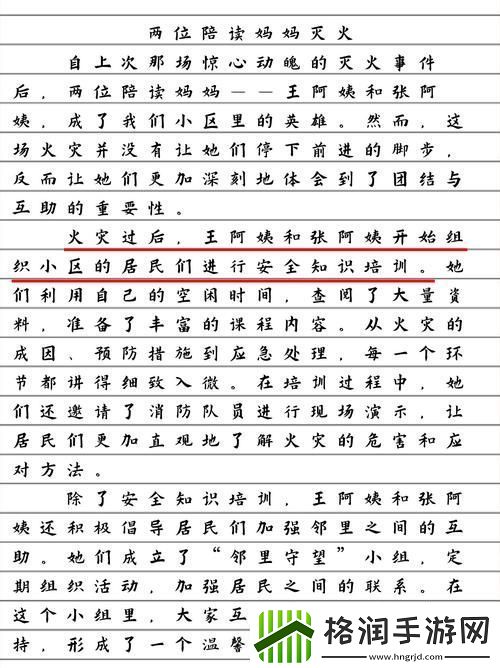 两位陪读妈妈灭火
自上次那场惊心动魄的灭火事件
后，两位陪读妈妈——王阿姨和张阿
姨，成了我们小区里的英雄。然而，这
场火灾并没有让她们停下前进的脚步，
反而让她们更加深刻地体会到了团结与
互助的重要性。
火灾过后，王阿姨和张阿姨开始组
织小区的居民们进行安全知识培训。她
们利用自己的空闲时间，查阅了大量资
料，准备了丰富的课程内容。从火灾的
成因、预防措施到应急处理，每一个环
节都讲得细致入微。在培训过程中，她
们还邀请了消防队员进行现场演示，让
居民们更加直观地了解火灾的危害和应
对方法。
除了安全知识培训，王阿姨和张阿
姨还积极倡导居民们加强邻里之间的互
助。她们成立了“邻里守望”小组，定
期组织活动，加强居民之间的联系。在
这个小组里，大家互
持，形成了一个温馨
格润手游网
www.hngrjd.com